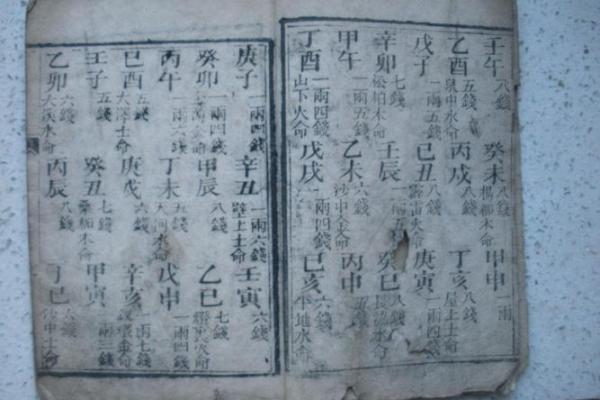 壬午 八錢 癸未 八錢 楊柳木命 甲申 一兩
乙酉 五錢 泉中水命 丙戌 八錢 丁亥 八錢 屋上土命
戊子 一兩五錢 己丑 八錢 火命 庚寅 一兩四錢
辛卯 七錢 松柏木命 壬辰 一兩五 癸巳 八錢 水命
甲午 一兩五錢 乙未 六錢 沙中金命 丙申 五錢
丁酉 一兩四錢 山下火命 戊戌 一兩四錢 己亥 六錢 平地木命
庚子 一兩四錢 辛丑 一兩六錢 壁上土命 壬寅 六錢
癸卯 一兩四錢 金命 甲辰 八錢 乙巳 七錢 火命
丙午 一兩六錢 丁未 五錢 天河水命 戊申 一兩四錢
己酉 五錢 大澤土命 庚戌 六錢 辛亥 一兩七錢 金命
壬子 五錢 癸丑 七錢 桑柘木命 甲寅 一兩二錢
乙卯 六錢 大溪水命 丙辰 八錢 丁巳 六錢 沙中土命